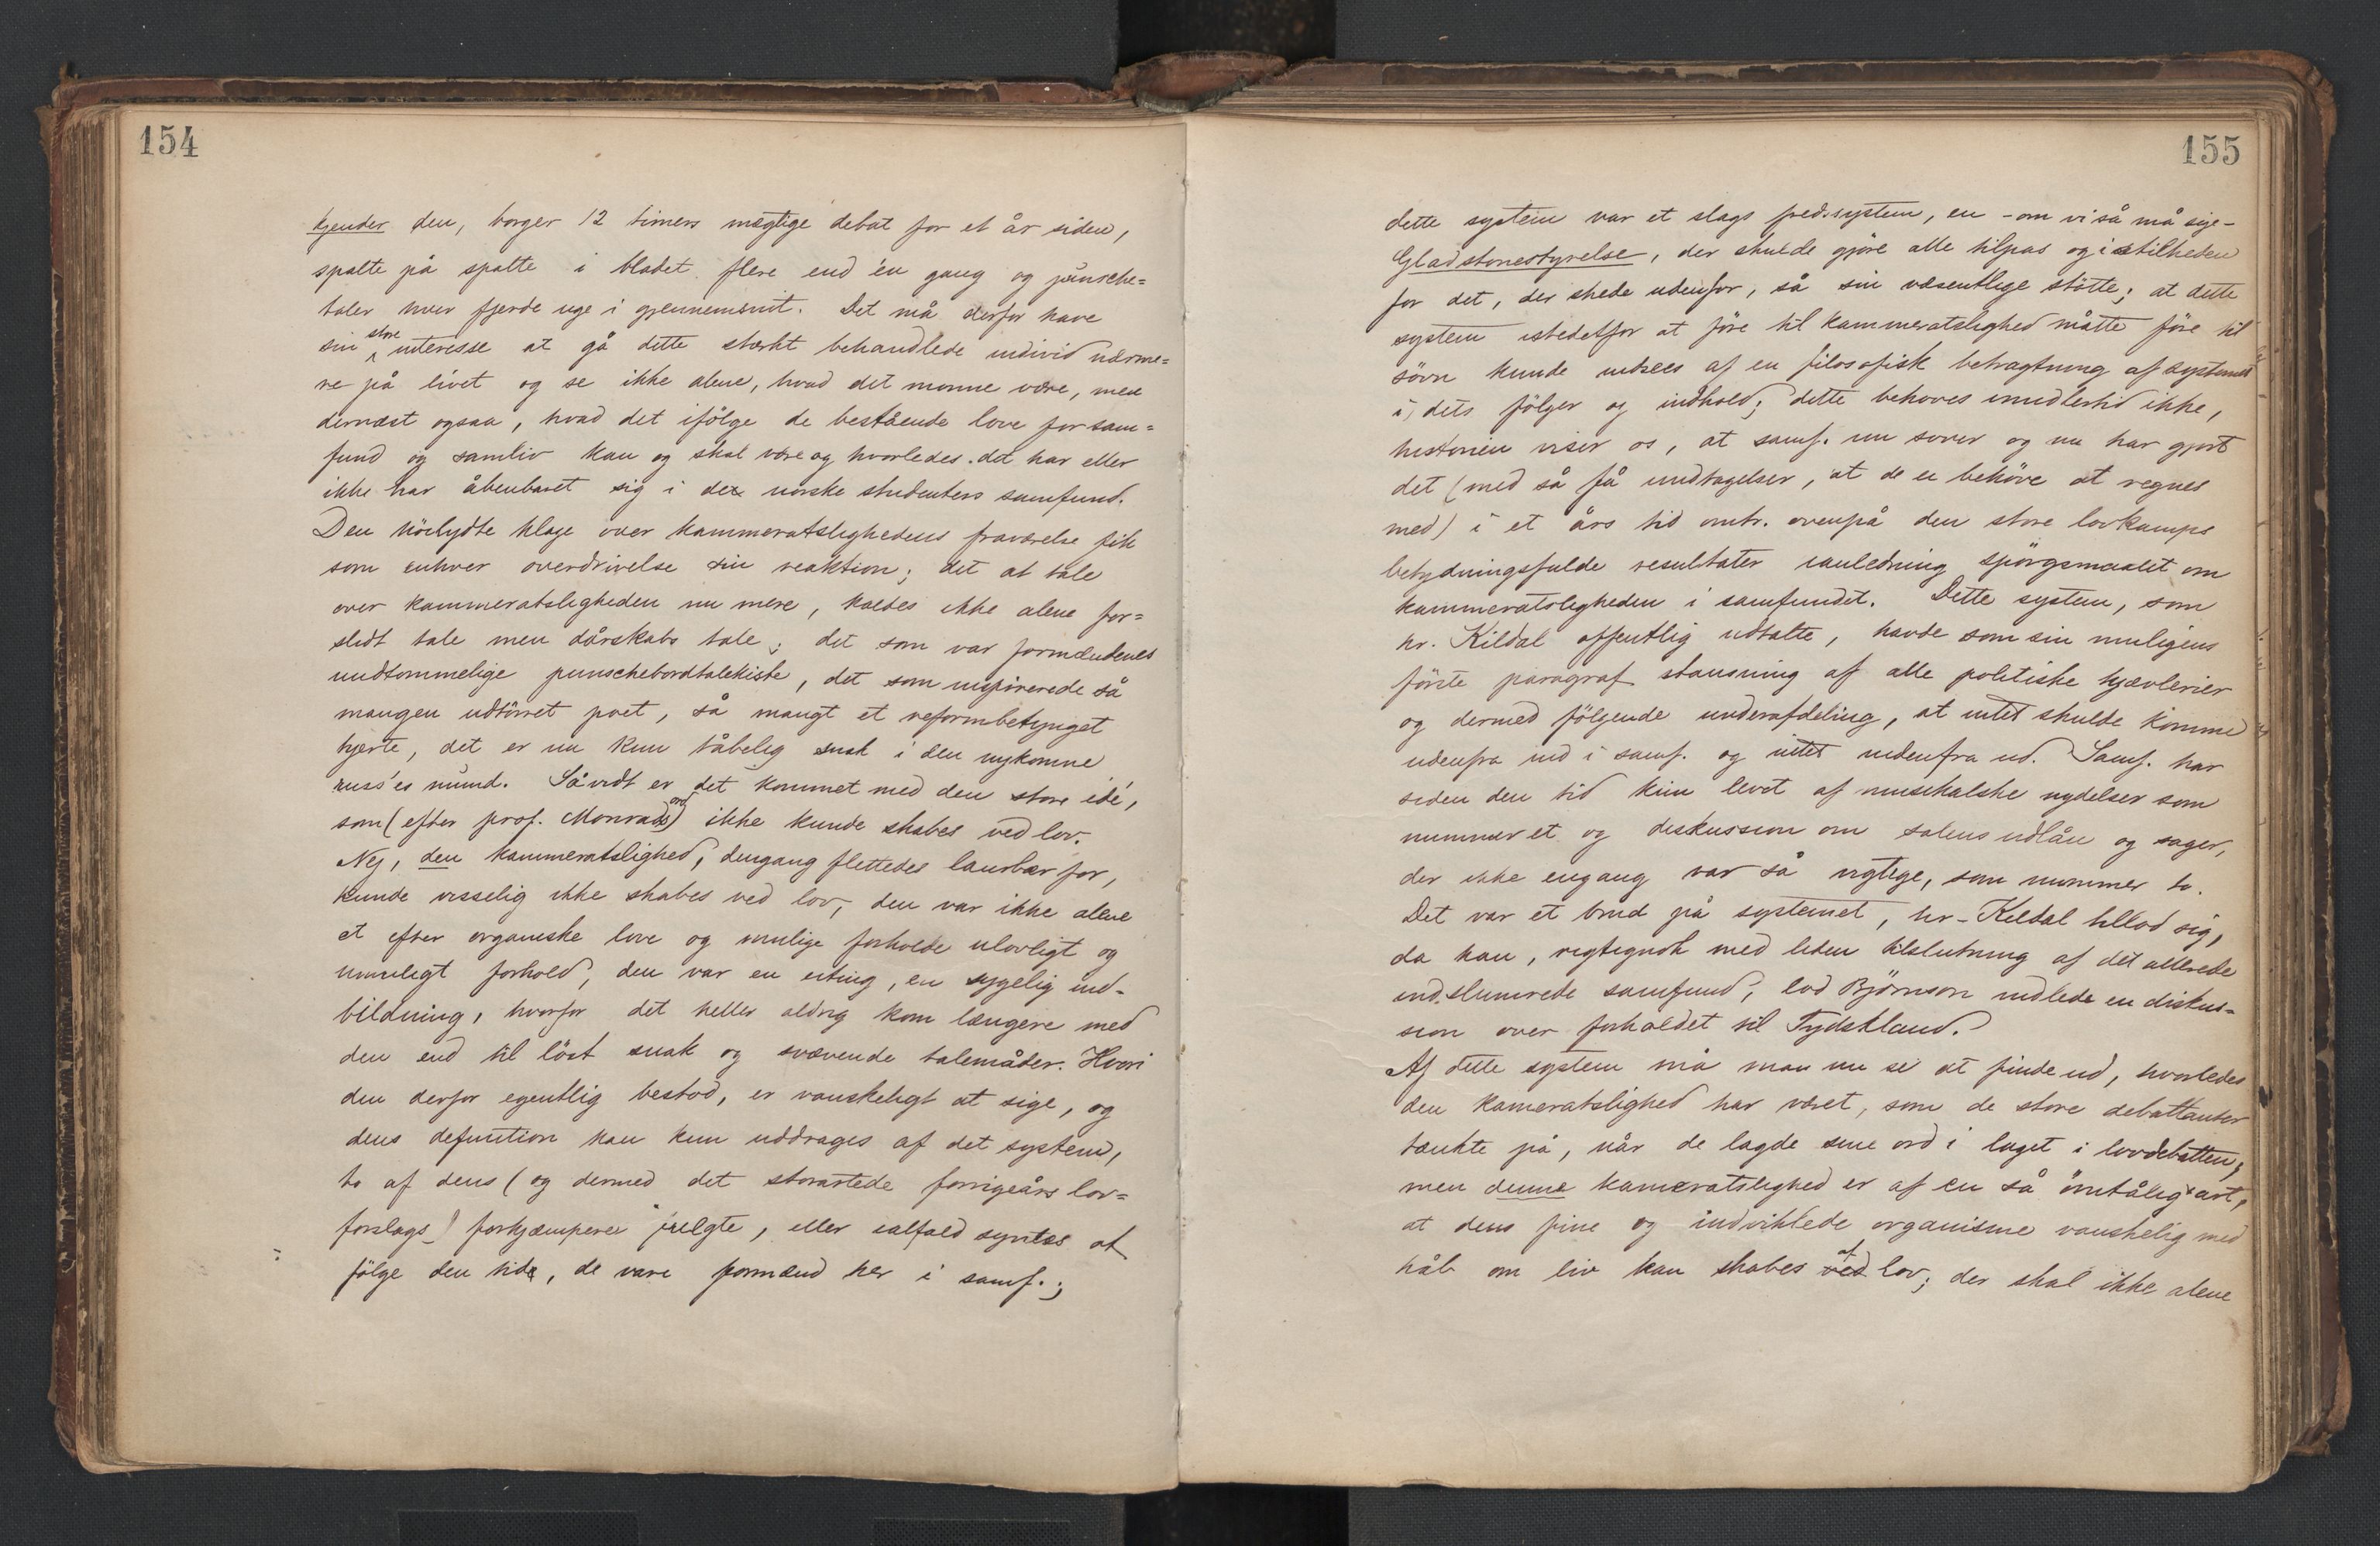 154
kjender den, borger 12 timers mægtige debat for et år siden,
spalte på spalte i bladet flere end én gang og punsche=
taler hver fjerde uge i gjennemsnit. Det må derfor have
sin store interesse at gå dette stærkt behandlede individ nærme=
re på livet og se ikke alene, hvad det monne være, men
dernæst ogsaa, hvad det ifölge de bestående love for sam=
fund og samliv kan og skal være og hvorledes det har eller
ikke har åbenbaret sig i det norske studenters samfund.
Den höilydte klage over kammeratslighedens fraværelse fik
som enhver overdrivelse sin reaktion; det at tale
over kammeratsligheden nu mere, kaldes ikke alene for=
slidt tale men dårskabs tale; det som var formændenes
uudtömmelige punschebordtalekiste, det som inspirerede så
mangen udtörret poet, så mangt et reformbetynget
hjerte, det er nu kun tåbelig snak i den nykomne
russ'es mund. Så vidt er det kommet med den store idé,
som (efter prof. Monrads ord) ikke kunde skabes ved lov.
Nej, den kammeratslighed, dengang flettedes laurbær for,
kunde visselig ikke skabes ved lov, den var ikke alene
et efter organiske love og mulige forholde ulovligt og
umuligt forhold, den var en uting, en sygelig ind-
bildning, hvorfor det heller aldrig kom længere med
den end til löst snak og svævende talemåder. Hvori
den derfor egentlig bestod, er vanskeligt at sige, og
dens definition kan kun uddrages af det system,
to af dens (og dermed det storartede forrigeårs lov=
forslags) forkjæmpere fulgte, eller ialfald syntes at
fölge den tid, de vare formænd her i samf.;
155
dette system var et slags fredssystem, en – om vi så må sige –
Gladstonestyrelse, der skulde gjöre alle tilpas og i stilheden
for det, der skede udenfor, så sin væsentlige stötte; at dette
system istedetfor at före til kammeratslighed måtte före til
sövn kunde indsees af en filosofisk betragtning af systemet
i dets fölger og indhold; dette behoves imidlertid ikke,
historien viser os, at samf. nu sover og nu har gjort
det (med så få undtagelser, at de ei behöve at regnes
med) i et års tid omtr. ovenpå den store lovkamps
betydningsfulde resultater ianledning spörgsmaalet om
kammeratsligheden i samfundet. Dette system, som
hr. Kildal offentlig udtalte, havde som sin muligens
förste paragraf stansning af alle politiske kjævlerier
og dermed fölgende underafdeling, at intet skulde komme
udenfra ind i samf. og intet indenfra ud. Samf. har
siden den tid kun levet af musikalske nydelser som
nummer et og diskussion om salens udlån og sager,
der ikke engang var så vigtige, som nummer to.
Det var et brud på systemet, hr. Kildal tillod sig,
da han, rigtignok med liden tilslutning af det allerede
indslumrede samfund, lod Björnson indlede en diskus=
sion over forholdet til Tydskland.
Af dette system må man nu se at finde ud, hvorledes
den kameratslighed har været, som de store debattanter
tænkte på, når de lagde sine ord i laget i lovdebatten;
men denne kameratslighed er af en så ömtålig art,
at dens fine og indviklede organisme vanskelig med
håb om liv kan skabes ved af lov; der skal ikke alene